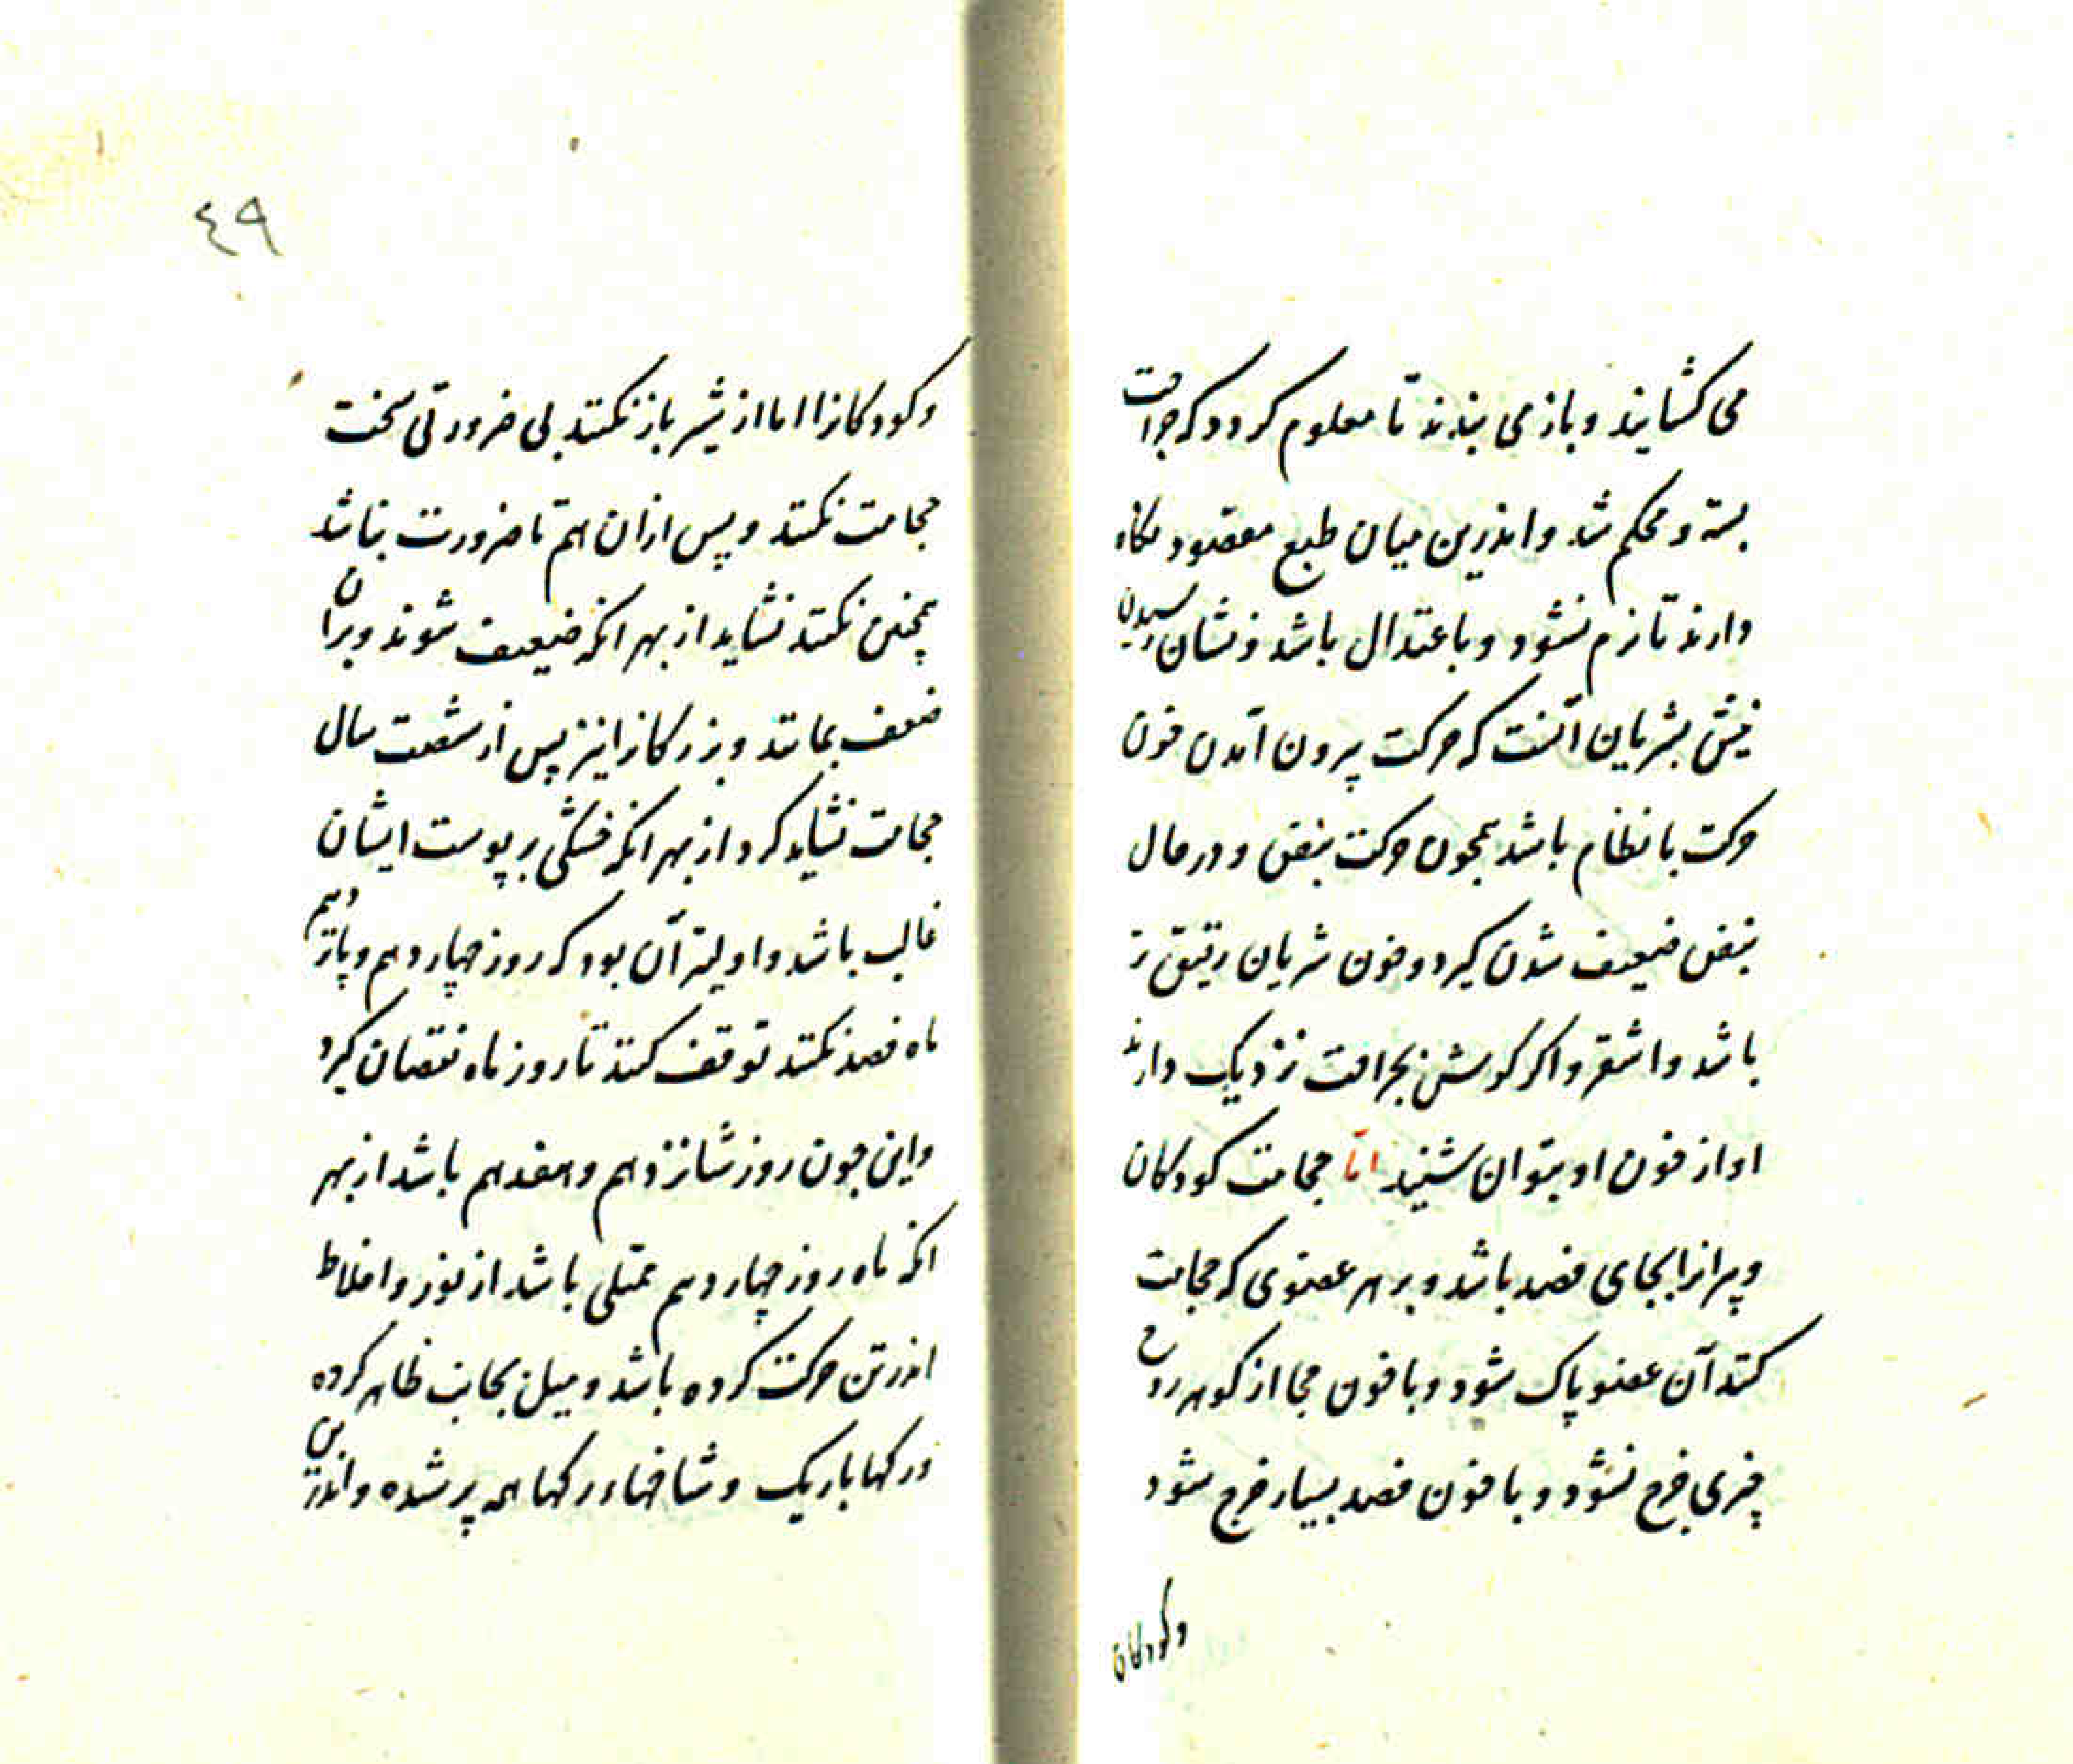 می کشایند و باز می بندند تا معلوم کردد که جراحت
بسته و محکم شد و اندرین میان طبع مقصود نکاه
دارند تا نرم نشود و باعتدال باشد و نشان رسیدن
نیش بشریان آنست که حرکت بیرون آمدن خون
حرکت با نظام باشد همچون حرکت نبض و در حال
نبض ضعیف شدن کیرد و خون شریان رقیق تر
باشد و اشقر و اکر کوش بجراحت نزدیک دارند
اواز خون او بتوان شنید اما حجامت کودکان
و پیرانرا بجای فصد باشد و بر هر عضوی که حجامت
کنند آن عضو پاک شود و با خون حجامت از کوهر روح
چیزی خرج نشود و با خون فصد بسیار خرج شود
وکودکان
٤٩
وکودکانرا اما از شیر باز نکنند بی ضرورتی سخت
حجامت نکنند و پس ازان هم تا ضرورت نباشد
همچنین نکنند نشاید از بهر انکه ضعیف شوند و بران
ضعف بمانند و بزرکانرا نیز پس از شصت سال
حجامت نشاید کرد از بهر انکه خشکی بر پوست ایشان
غالب باشد و اولیتر آن بود که روز چهاردهم و پانزدهم
ماه فصد نکنند توقف کنند تا روز ماه نقصان کیرد
واین چون روز شانزدهم و هفدهم باشد از بهر
انکه ماه روز چهاردهم ممتلی باشد از نور و اخلاط
اندر تن حرکت کرده باشد و میل بجانب ظاهر کرده
و رکها باریک و شاخهاء رکها همه پر شده و اندرین